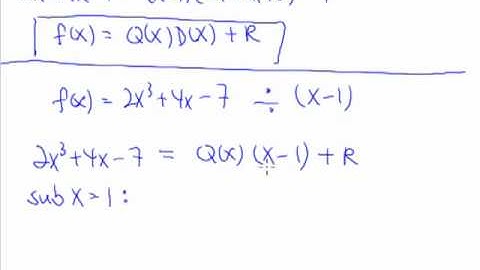 f(x) = Q(x)D(x) + R
f(x) = 2x³+4x-7 ÷ (x-1)
2x³+4x-7 = Q(x) (x-1) + R
sub x=1: